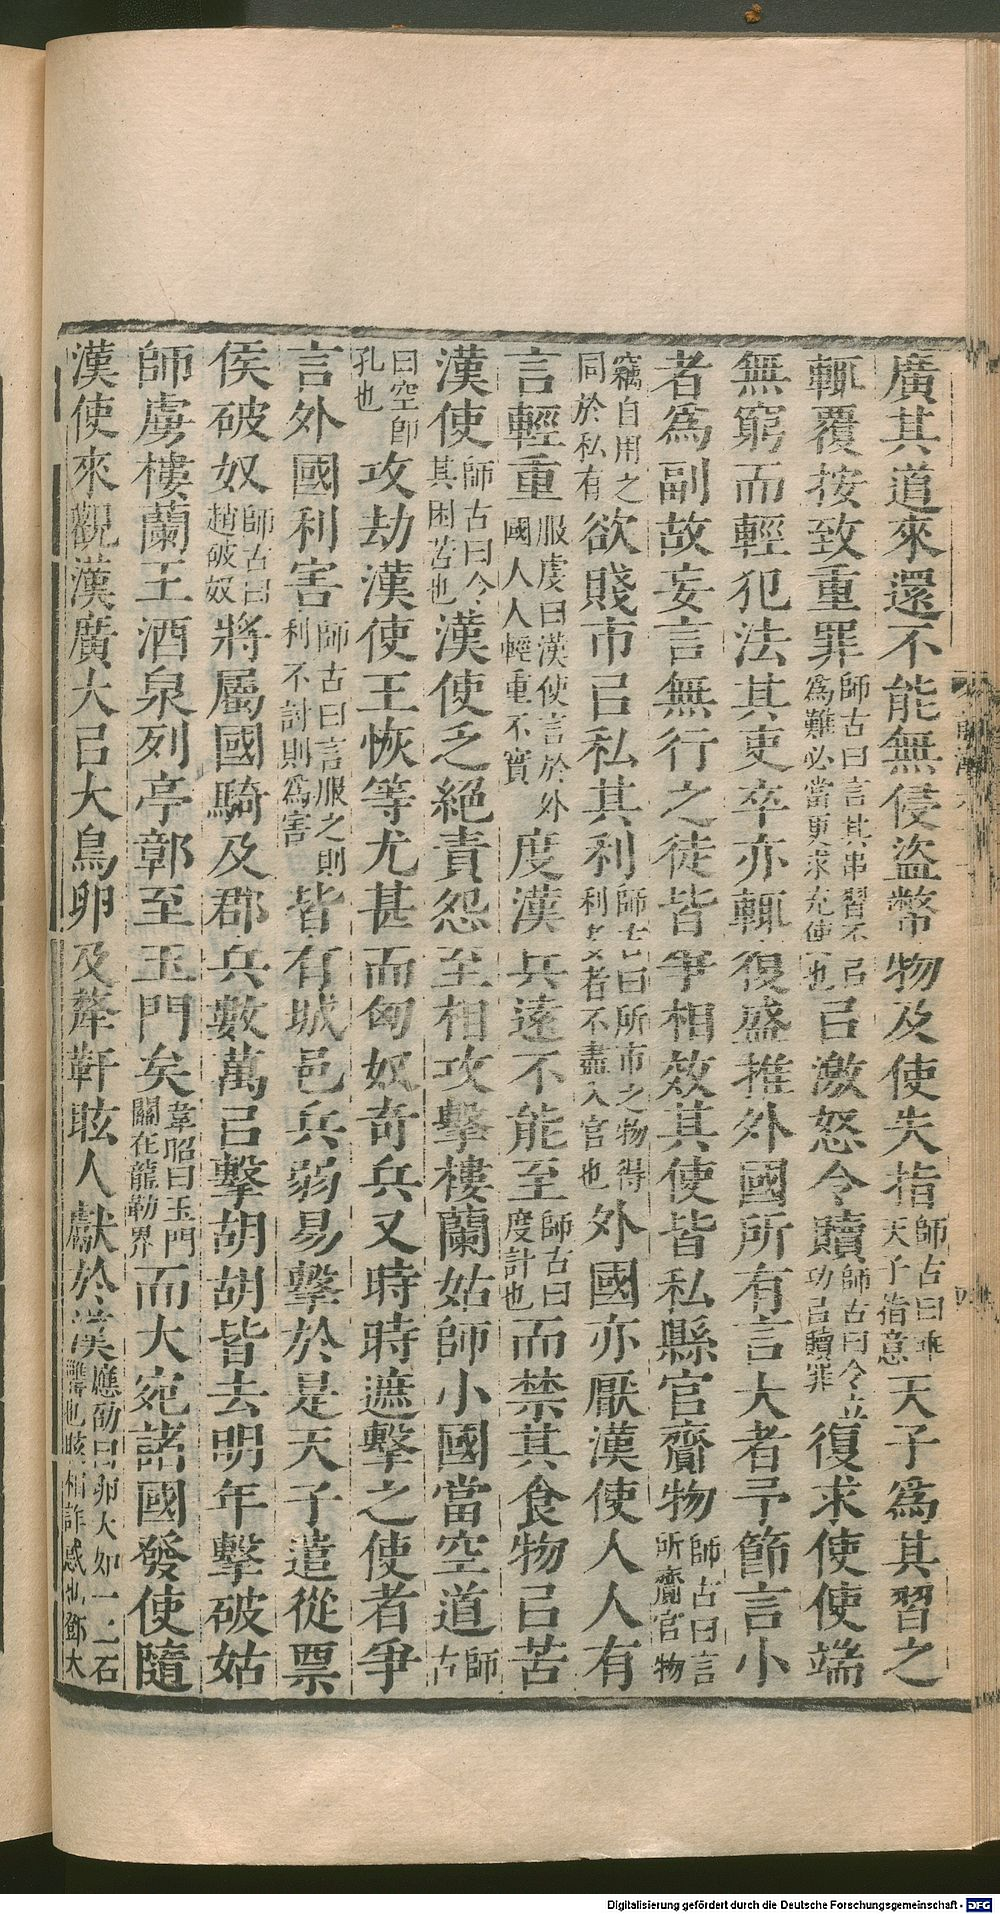 廣其道來還不能無侵盜幣物及使失指師古曰乖天子指意天子為其習之
輒覆按致重罪師古曰言其串習不㠯為難必當更求充使也㠯激怒令贖師古曰令立功㠯贖罪復求使使端
無窮而輕犯法其吏卒亦輒復盛推外國所有言大者予節言小
者為副故妄言無行之徒皆爭相效其使皆私縣官齎物師古曰言所齎官物
竊自用之同於私有欲賤市㠯私其利師古曰所市之物得利多者不盡入官也外國亦厭漢使人人有
言輕重服虔曰漢使言於外國人人輕重不實度漢兵遠不能至師古曰度計也而禁其食物㠯苦
漢使師古曰令其困苦也漢使乏絕責怨至相攻擊樓蘭姑師小國當空道師古
曰空即孔也攻劫漢使王恢等尤甚而匈奴奇兵又時時遮擊之使者爭
言外國利害師古曰言服之則利不討則為害皆有城邑兵弱易擊於是天子遣從票
侯破奴師古曰趙破奴將屬國騎及郡兵數萬㠯擊胡胡皆去明年擊破姑
師虜樓蘭王酒泉列亭鄣至玉門矣韋昭曰玉門關在龍勒界而大宛諸國發使隨
漢使來觀漢廣大㠯大鳥卵及犛靬眩人獻於漢應劭曰卵大如一二石甕也眩相詐惑也鄧大
Digitalisierung gefördert durch die Deutsche Forschungsgemeinschaft - DFG